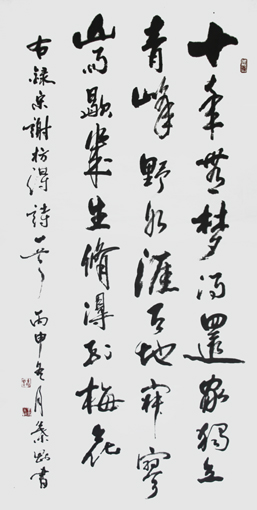 十年無夢得還家獨立
青峰野水涯天地寂寥
山雨歇幾生脩得到梅花
右録宋謝枋得詩一首丙申冬月書